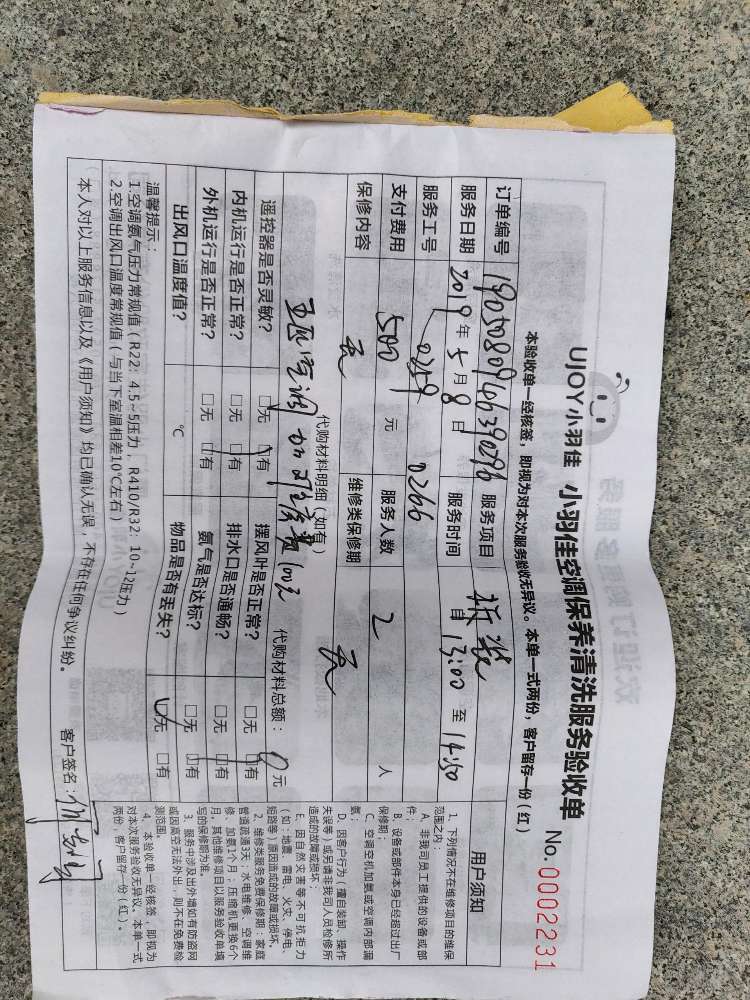 UJOY小羽佳 小羽佳空调保养清洗服务验收单 No. 0002231
本验收单一经核签，即视为对本次服务验收无异议。本单一式两份，客户留存一份(红)
订单编号 服务项目 拆装
服务日期 2019 年 5 月 8 日 服务时间 自 13:00 至 14:50
服务工号 0259 0266
支付费用 500 元 服务人数 2 人
保修内容 无 维修类保修期 无
代购材料明细(如有)
代购材料总额： 0 元
遥控器是否灵敏? □无 □有 摆风叶是否正常? □无 □有
内机运行是否正常? □无 □有 排水口是否通畅? □无 □有
外机运行是否正常? □无 □有 氨气是否达标? □无 □有
出风口温度值? ℃ 物品是否有丢失? □无 □有
温馨提示：
1.空调氨气压力常规值(R22：4.5~5压力，R410/R32：10~12压力)
2.空调出风口温度常规值(与当下室温相差10℃左右)
本人对以上服务信息以及《用户须知》均已确认无误，不存在任何争议纠纷。 客户签名：
用户须知
1、下列情况不在维修项目的维保
范围之内：
A、非我司员工提供的设备或部
件；
B、设备或部件本身已经超过出厂
保修期；
C、空调空机加氨或空调内部漏
氨；
D、因客户行为(擅自装卸、操作
失误等)或另请非我司人员检修所
造成的故障或损坏；
E、因自然灾害等不可抗拒力
(如：地震、雷电、火灾、停电、
短路等)原因造成的故障或损坏。
2、维修类服务免费保修期：家庭
管道疏通3天；水电维修、空调维
修、加氨1个月；压缩机更换6个
月，其他维修项目以服务验收单填
写的保修期为准。
3、服务中涉及出外墙如有防盗网
或因高空无法外出，则不在免费检
测范围。
4、本验收单一经核签，即视为
对本次服务验收无异议。本单一式
两份，客户留存一份(红)。